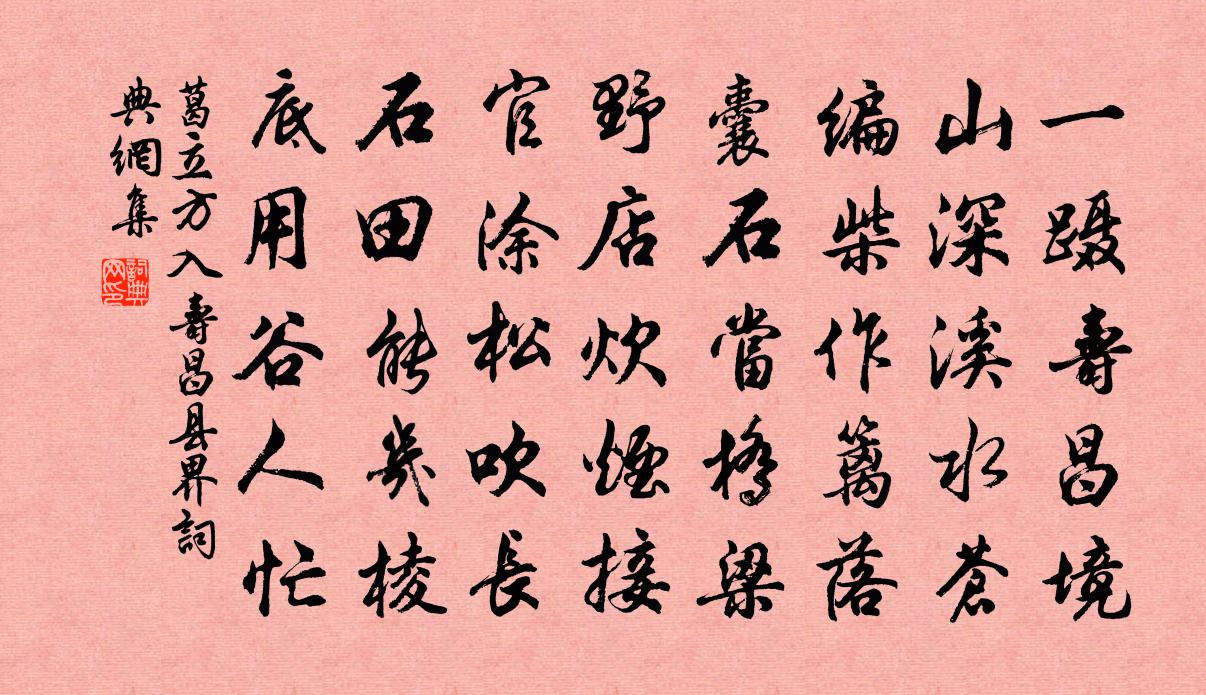 一蹑壽昌境
山深溪水蒼
编柴作篱落
囊石當橋梁
野店炊煙接
官涂松吹長
石田能幾棱
底用谷人忙
葛立方入壽昌县界詞
典網集
詞典网印